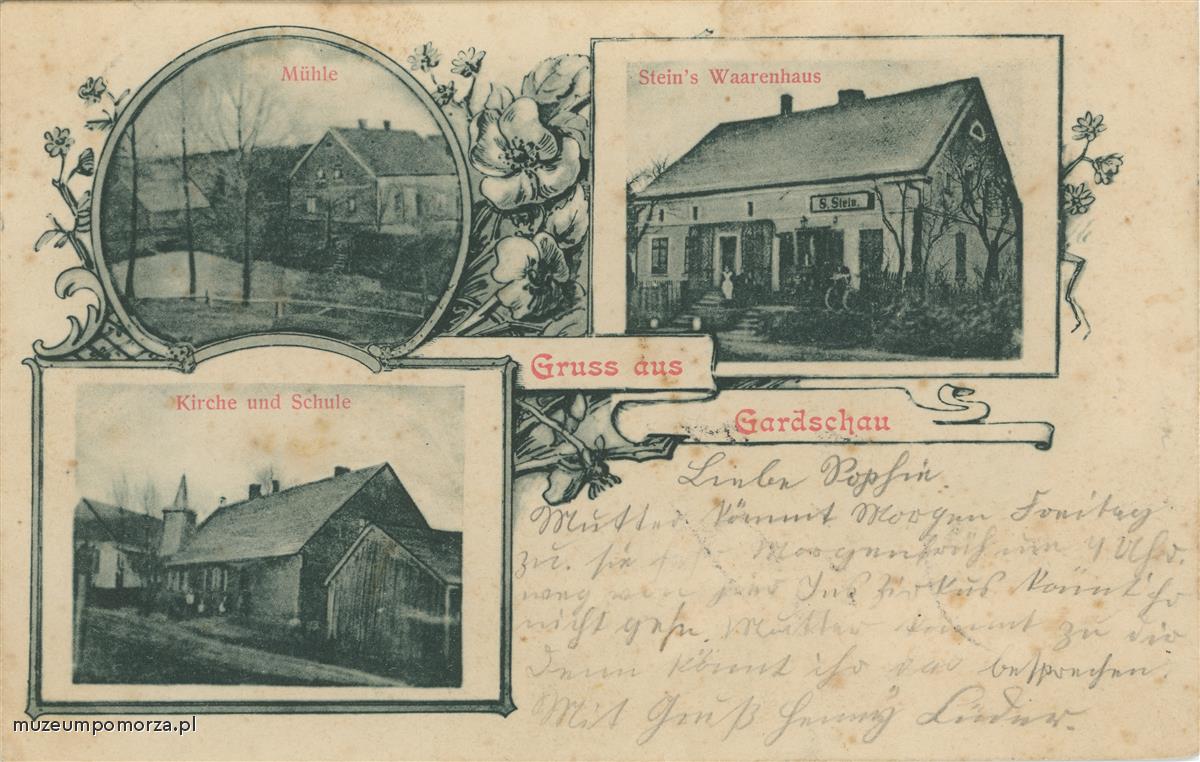 Mühle
Stein's Waarenhaus
S. Stein.
Gruss aus
Gardschau
Kirche und Schule
Liebe Sophie.
Mutter kömmt Morgen Freitag
zu. sie Morgenfrüh um 4 Uhr.
weg von hier Ins Zirkus könnt ihr
nicht gehn. Mutter kömmt zu dir
denn könnt ihr besprechen.
Mit Gruß Henny Lüder.
muzeumpomorza.pl